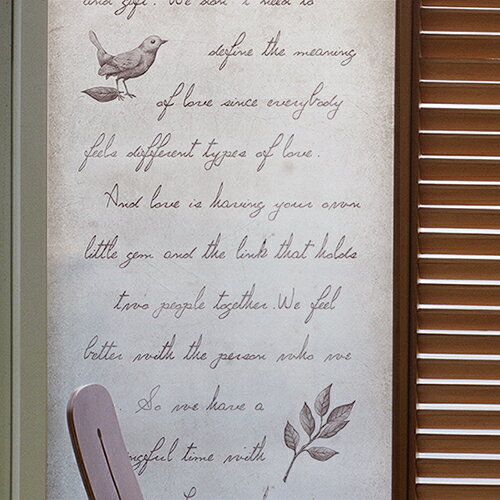 and gift. We don't need to
define the meaning
of love since everybody
feels different types of love.
And love is having your own
little gem and the link that holds
two people together. We feel
better with the person who we
. So we have a
time with